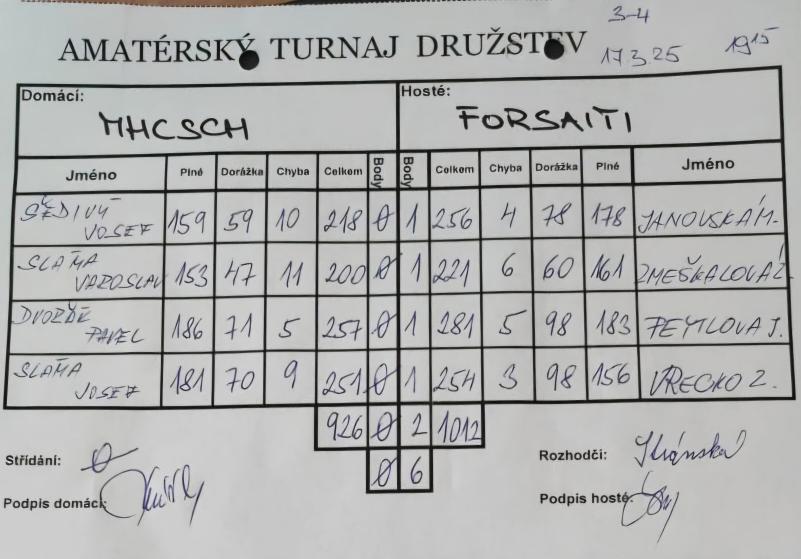 3-4
AMATÉRSKÝ TURNAJ DRUŽSTEV 17.3.25 19 15
Domácí: Hosté:
MHCSCH FORSAITI
Jméno Plné Dorážka Chyba Celkem Body Body Celkem Chyba Dorážka Plné Jméno
ŠEDIVÝ JOSEF 159 59 10 218 0 1 256 4 78 178 JANOVSKÁ M.
SLÁMA JAROSLAV 153 47 11 200 0 1 221 6 60 161 ZMEŠKALOVÁ Z.
DVOŘÁK PAVEL 186 71 5 257 0 1 281 5 98 183 PEYTLOVA J.
SLÁMA JOSEF 181 70 9 251 0 1 254 3 98 156 VRECKO Z.
926 0 2 1012
0 6
Střídání: 0 Rozhodčí:
Podpis domácí: Podpis hosté: